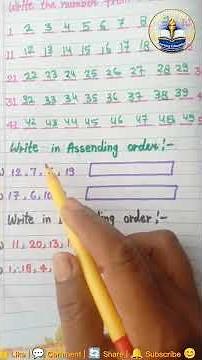 Write the number from
1 2 3 4 5 6 7 8
11 12 13 14 15 16 17 18
21 22 23 24 25 26 27 28 29
31 32 33 34 35 36 37 38 39
41 42 43 44 45 46 47 48 49
Write in Assending order:-
12, 7, 19
17, 6, 10
Write in order:-
11, 20, 13, 1
1, 18, 4,
Like | Comment | Share | Subscribe